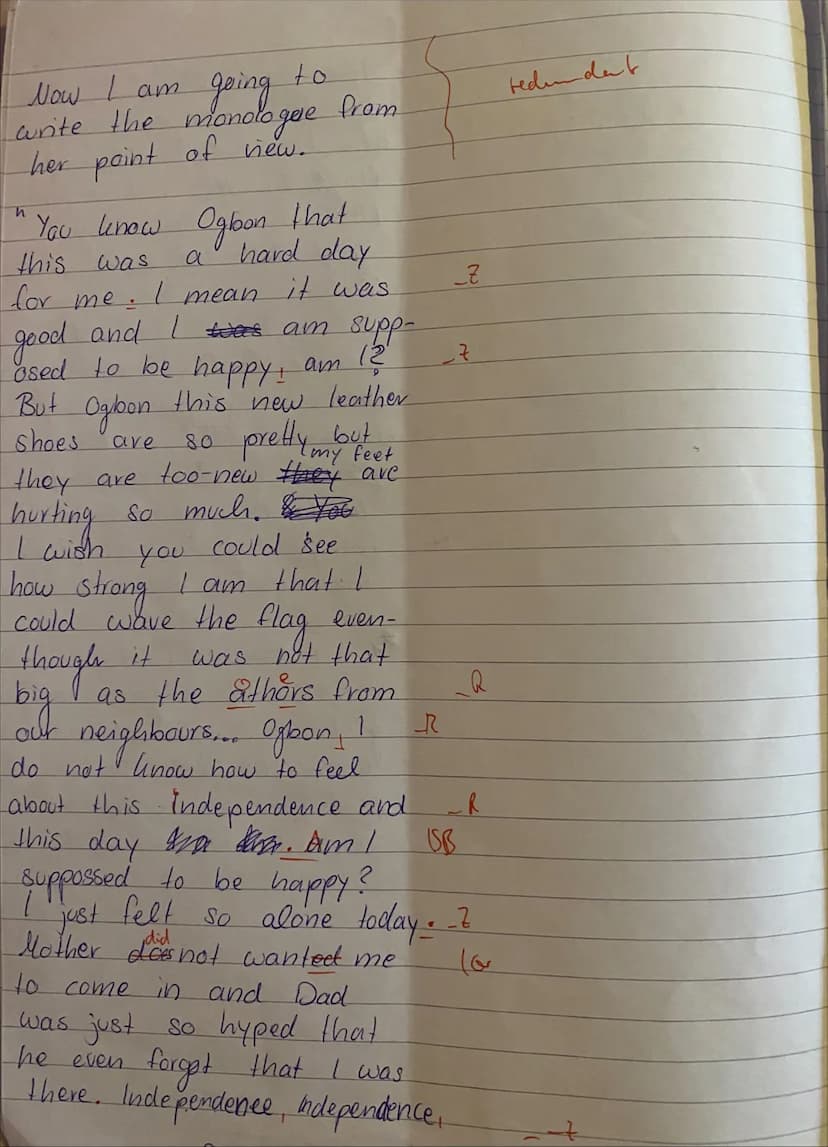 Now I am going to
write the monologue from
her point of view.
redundent
"You know Ogbon that
this was a hard day
for me. I mean it was
_Z
good and I was am supp-
osed to be happy, am I?
_Z
But Ogbon this new leather
shoes are so pretty but
my feet
they are too-new they are
hurting so much.
I wish you could see
how strong I am that I
could wave the flag even-
though it was not that
big as the others from
_R
our neighbours... Ogbon, I
_R
do not know how to feel
about this independence and
_R
this day . Am I
ISB
suppossed to be happy?
I just felt so alone today.
_Z
did
Mother does not wanted me
to come in and Dad
was just so hyped that
he even forgot that I was
there. Independence, independence,
_Z